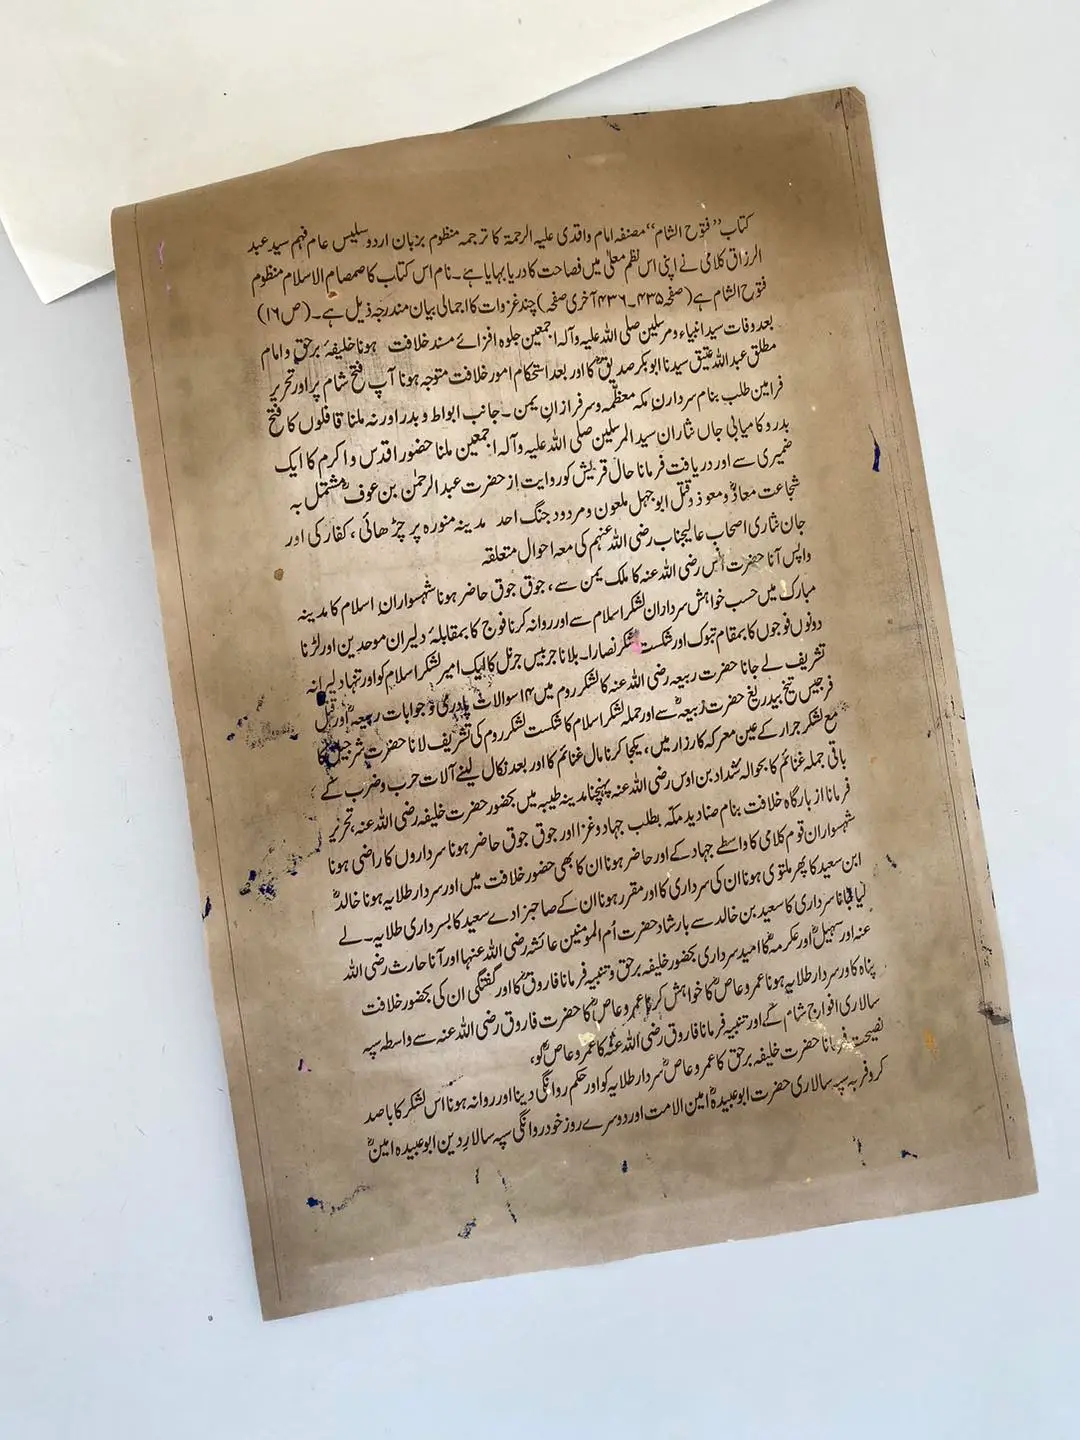 کتاب ’’فتوح الشام‘‘ مصنفہ امام واقدی علیہ الرحمۃ کا ترجمہ منظوم بزبان اردو سلیس عام فہم سید عبد
الرزاق کلامی نے اپنی اس نظم معلیٰ میں فصاحت کا دریا بہایا ہے۔ نام اس کتاب کا صمصام الاسلام منظوم
فتوح الشام ہے (صفحہ ۴۳۵۔۴۳۶ آخری صفحہ) چند غزوات کا اجمالی بیان مندرجہ ذیل ہے۔ (ص ۱۶)
بعد وفات سید انبیاء و مرسلین صلی اللہ علیہ وآلہ اجمعین جلوہ افزائے مسند خلافت ہونا خلیفۂ برحق و امام
مطلق عبد اللہ عتیق سیدنا ابوبکر صدیقؓ کا اور بعد استحکام امور خلافت متوجہ ہونا آپ فتح شام پر اور تحریر
فرامین طلب بنام سردارن مکہ معظّمہ و سرفرازانِ یمن۔ جانب ابواط و بدر اور نہ ملنا قافلوں کا فتح
بدر و کامیابی جاں نثاران سید المرسلین صلی اللہ علیہ وآلہ اجمعین ملنا حضور اقدس و اکرم کا ایک
ضمیری سے اور دریافت فرمانا حال قریش کو روایت از حضرت عبد الرحمٰن بن عوفؓ مشتمل بہ
شجاعت معاذؓ و معوذ و قتل ابوجہل ملعون و مردود جنگ احد مدینہ منورہ پر چڑھائی، کفار کی اور
جان نثاری اصحاب عالیجناب رضی اللہ عنہم کی معہ احوال متعلقہ
واپس آنا حضرت انس رضی اللہ عنہ کا ملک یمن سے، جوق جوق حاضر ہونا شہسوارانِ اسلام کا مدینہ
مبارک میں حسب خواہش سرداران لشکر اسلام سے اور روانہ کرنا فوج کا بمقابلۂ دلیران موحدین اور لڑنا
دونوں فوجوں کا بمقام تبوک اور شکست لشکر نصارا۔ بلانا جربیس جرنل کا ایک امیر لشکر اسلام کو اور تنہا دلیرانہ
تشریف لے جانا حضرت ربیعہ رضی اللہ عنہ کا لشکر روم میں ۱۴ سوالات پادری و جوابات ربیعہؓ اور قتل
فرجیس تیخ بیدریغ حضرت زبیعہؓ سے اور جملہ لشکر اسلام کا شکست لشکر روم کی تشریف لانا حضرت شرجیل کا
مع لشکر جرار کے عین معرکہ کارزار میں، یکجا کرنا مال غنائم کا اور بعد نکال لینے آلات حرب و ضرب کے
باقی جملہ غنائم کا بحوالہ شداد بن اوس رضی اللہ عنہ پہنچنا مدینہ طیبہ میں بحضور حضرت خلیفہ رضی اللہ عنہ، تحریر
فرمانا از بارگاہ خلافت بنام صنادید مکّہ بطلب جہاد و غزا اور جوق جوق حاضر ہونا سرداروں کا راضی ہونا
شہسواران قوم کلامی کا واسطے جہاد کے اور حاضر ہونا ان کا بھی حضور خلافت میں اور سردار طلایہ ہونا خالدؓ
ابن سعید کا پھر ملتوی ہونا ان کی سرداری کا اور مقرر ہونا ان کے صاحبزادے سعید کا بسرداری طلایہ۔ لے
لیا جانا سرداری کا سعید بن خالد سے بارشاد حضرت اُم المومنین عائشہ رضی اللہ عنہا اور آنا حارث رضی اللہ
عنہ اور سہیلؓ اور عکرمہؓ کا امید سرداری بحضور خلیفہ برحق و تنبیہ فرمانا فاروقؓ کا اور گفتگی ان کی بحضور خلافت
پناہ کا ور سردار طلایہ ہونا عمرو عاصؓ کا خواہش کرنا عمرو عاصؓ کا حضرت فاروق رضی اللہ عنہ سے واسطہ سپہ
سالاری افواج شام کے اور تنبیہ فرمانا فاروق رضی اللہ عنہ کا عمرو عاصؓ کو،
نصیحت فرمانا حضرت خلیفہ برحق کا عمرو عاصؓ سردار طلایہ کو اور حکم روانگی دینا اور روانہ ہونا اس لشکر کا باصد
کروفر بہ سپہ سالاری حضرت ابوعبیدہؓ امین الامت اور دوسرے روز خود روانگی سپہ سالارِ دین ابوعبیدہ امینؓ